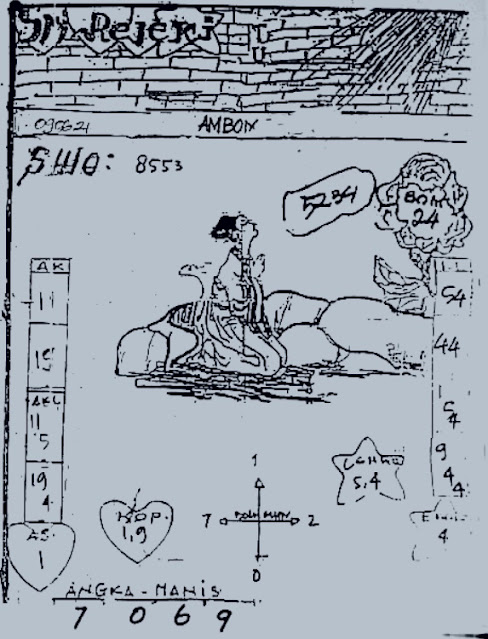 Sri Rejeki
090621
AMBON
SHIO: 8553
5234
BOM
24
AK
11
19
AKL
11
5
19
4
AS
1
KOP.
1,9
1
7
2
0
5,4
54
44
4
9
4
4
4
ANGKA - MANIS
7 0 6 9